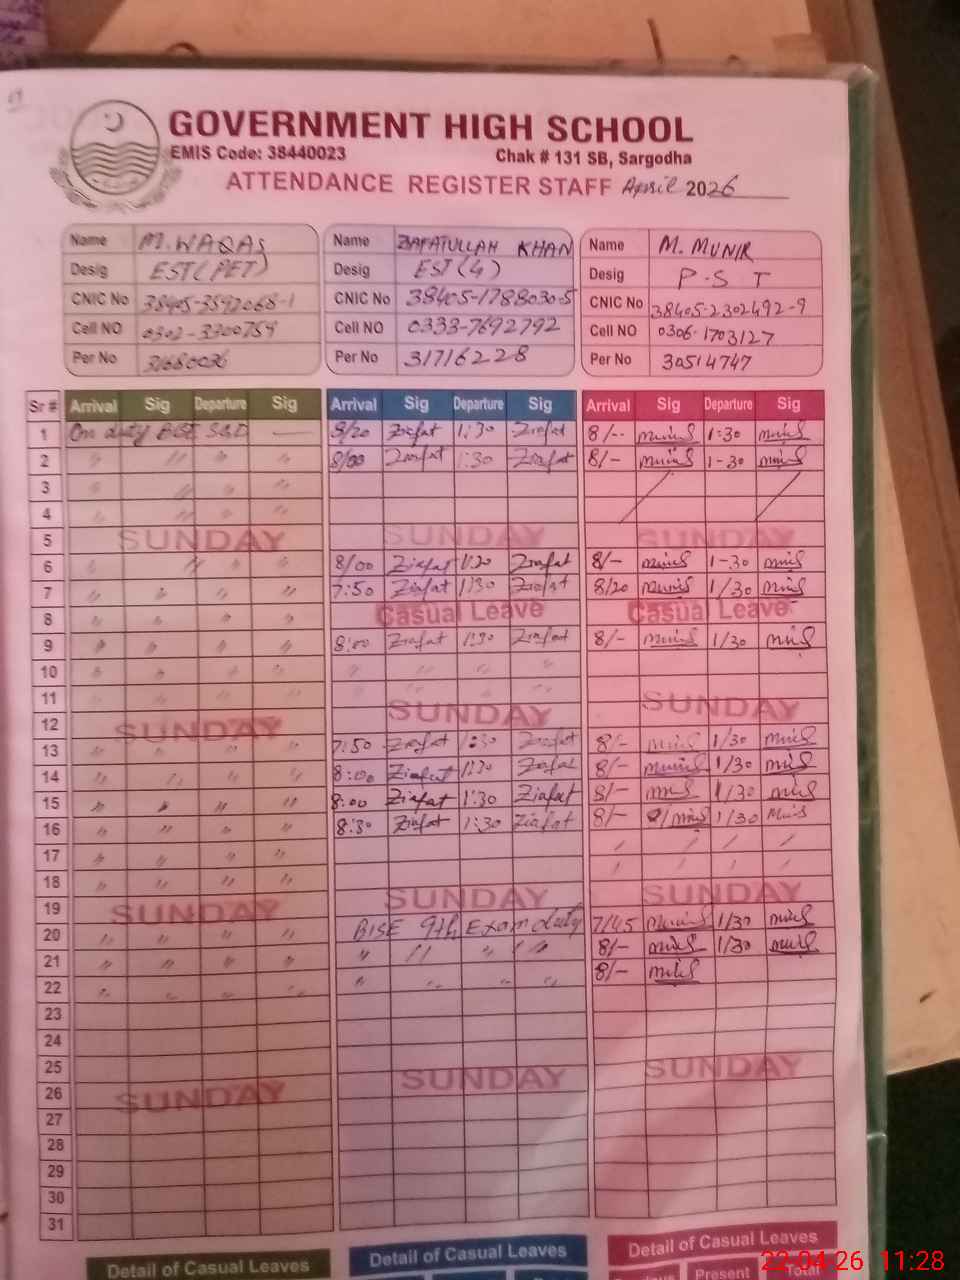 GOVERNMENT HIGH SCHOOL
EMIS Code: 38440023 Chak # 131 SB, Sargodha
ATTENDANCE REGISTER STAFF April 2026
Name M. WAQAS Name ZAFATULLAH KHAN Name M. MUNIR
Desig EST(PET) Desig EST(G) Desig P-S T
CNIC No 38405-3592068-1 CNIC No 38405-1788030-5 CNIC No 38405-2302492-9
Cell NO 0302-3300759 Cell NO 0333-7692792 Cell NO 0306-1703127
Per No 31680036 Per No 31716228 Per No 30514747
Sr # Arrival Sig Departure Sig Arrival Sig Departure Sig Arrival Sig Departure Sig
1 On duty BISE SGD — 8/20 Ziafat 1:30 Ziafat 8/-- munir 1:30 munir
2 〃 〃 〃 〃 8/00 Ziafat 1:30 Ziafat 8/- munir 1-30 munir
3 〃 〃 〃
4 〃 〃 〃 〃
5 SUNDAY SUNDAY SUNDAY
6 〃 〃 〃 〃 8/00 Ziafat 1:30 Ziafat 8/- munir 1-30 munir
7 〃 〃 〃 〃 7:50 Ziafat 1:30 Ziafat 8/20 munir 1/30 munir
8 〃 〃 〃 〃 Casual Leave Casual Leave
9 〃 〃 〃 〃 8:00 Ziafat 1:30 Ziafat 8/- munir 1/30 munir
10 〃 〃 〃 〃 〃 〃 〃 〃
11 〃 〃 〃 〃 〃 〃 〃 〃
12 SUNDAY SUNDAY SUNDAY
13 〃 〃 〃 〃 7:50 Ziafat 1:30 Ziafat 8/- munir 1/30 munir
14 〃 〃 〃 〃 8:00 Ziafat 1:30 Ziafat 8/- munir 1/30 munir
15 〃 〃 〃 〃 8:00 Ziafat 1:30 Ziafat 8/- munir 1/30 munir
16 〃 〃 〃 〃 8:30 Ziafat 1:30 Ziafat 8/- munir 1/30 munir
17 〃 〃 〃 〃
18 〃 〃 〃 〃
19 SUNDAY SUNDAY SUNDAY
20 〃 〃 〃 〃 BISE 9th Exam duty 7/45 munir 1/30 munir
21 〃 〃 〃 〃 〃 〃 〃 〃 8/- munir 1/30 munir
22 〃 〃 〃 〃 〃 〃 〃 〃 8/- munir
23
24
25
26 SUNDAY SUNDAY SUNDAY
27
28
29
30
31
Detail of Casual Leaves Detail of Casual Leaves Detail of Casual Leaves
Present Total
22-04-26 11:28